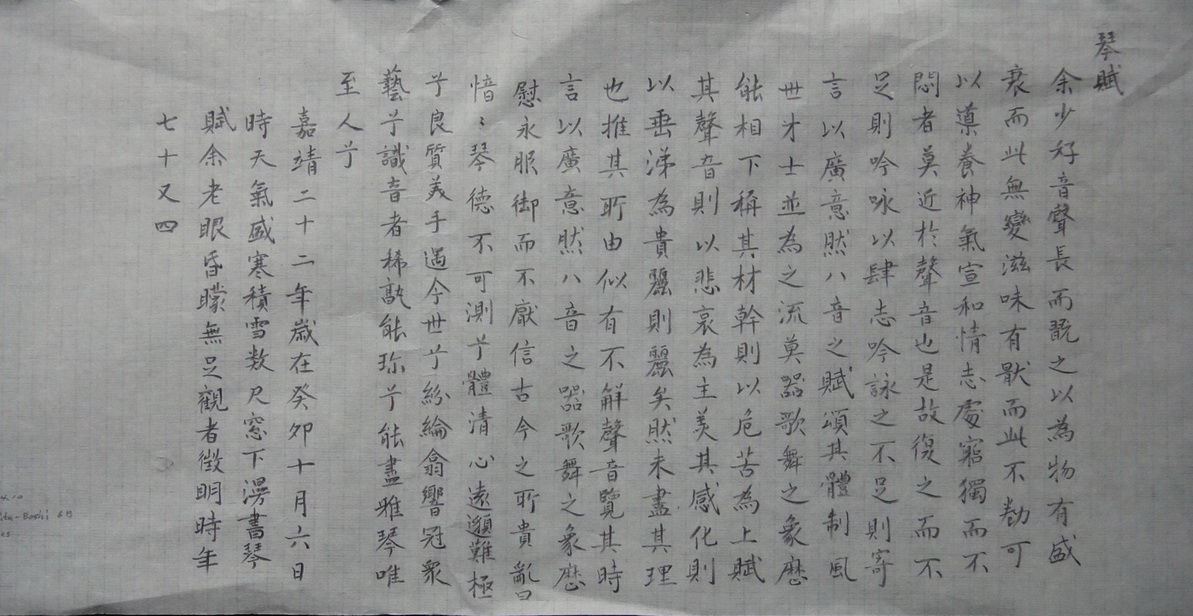 琴賦
余少好音聲長而翫之以為物有盛
衰而此無變滋味有厭而此不勌可
以導養神氣宣和情志處窮獨而不
悶者莫近於聲音也是故復之而不
足則吟咏以肆志吟詠之不足則寄
言以廣意然八音之賦頌其體制風
世才士並為之流莫器歌舞之象歷
能相下稱其材幹則以危苦為上賦
其聲音則以悲哀為主美其感化則
以垂涕為貴麗則麗矣然未盡其理
也推其所由似有不解聲音覽其時
言以廣意然八音之器歌舞之象歷
慰永服御而不厭信古今之所貴亂曰
愔〻琴德不可測兮體清心遠邈難極
兮良質美手遇今世兮紛綸翕響冠衆
藝兮識音者稀孰能珎兮能盡雅琴唯
至人兮
嘉靖二十二年歲在癸卯十月六日
時天氣盛寒積雪数尺窓下漫書琴
賦余老眼昏矇無足觀者徴明時年
七十又四